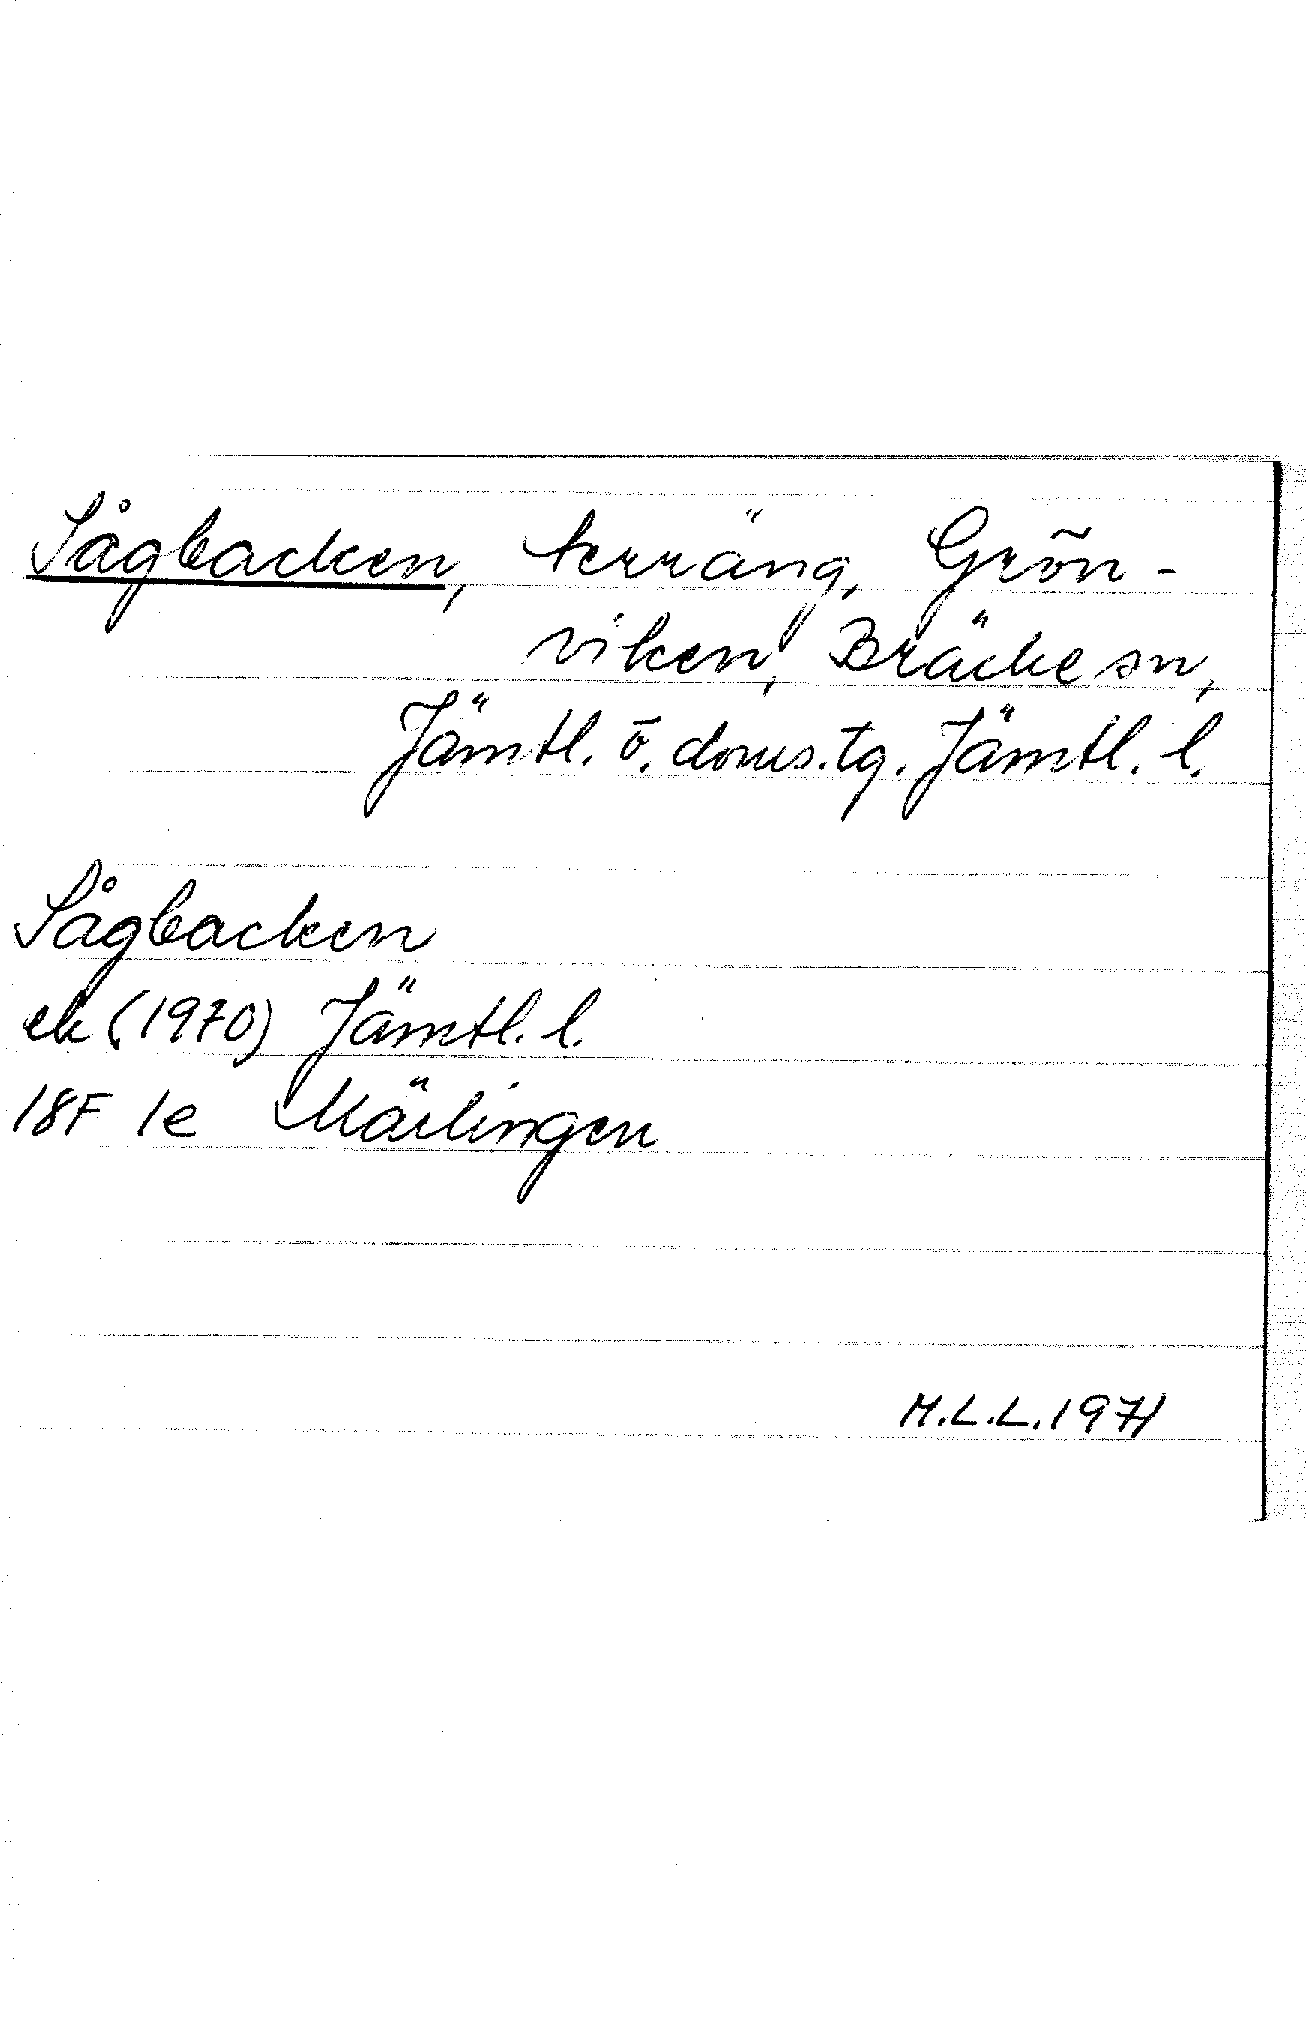 Sågbacken, terräng, Grön-
viken, Bräcke sn,
Jämtl. ö. doms.tg. Jämtl. l.
Sågbacken
ek (1970) Jämtl. l.
18F 1e Mällingen
M.L.L. 1971